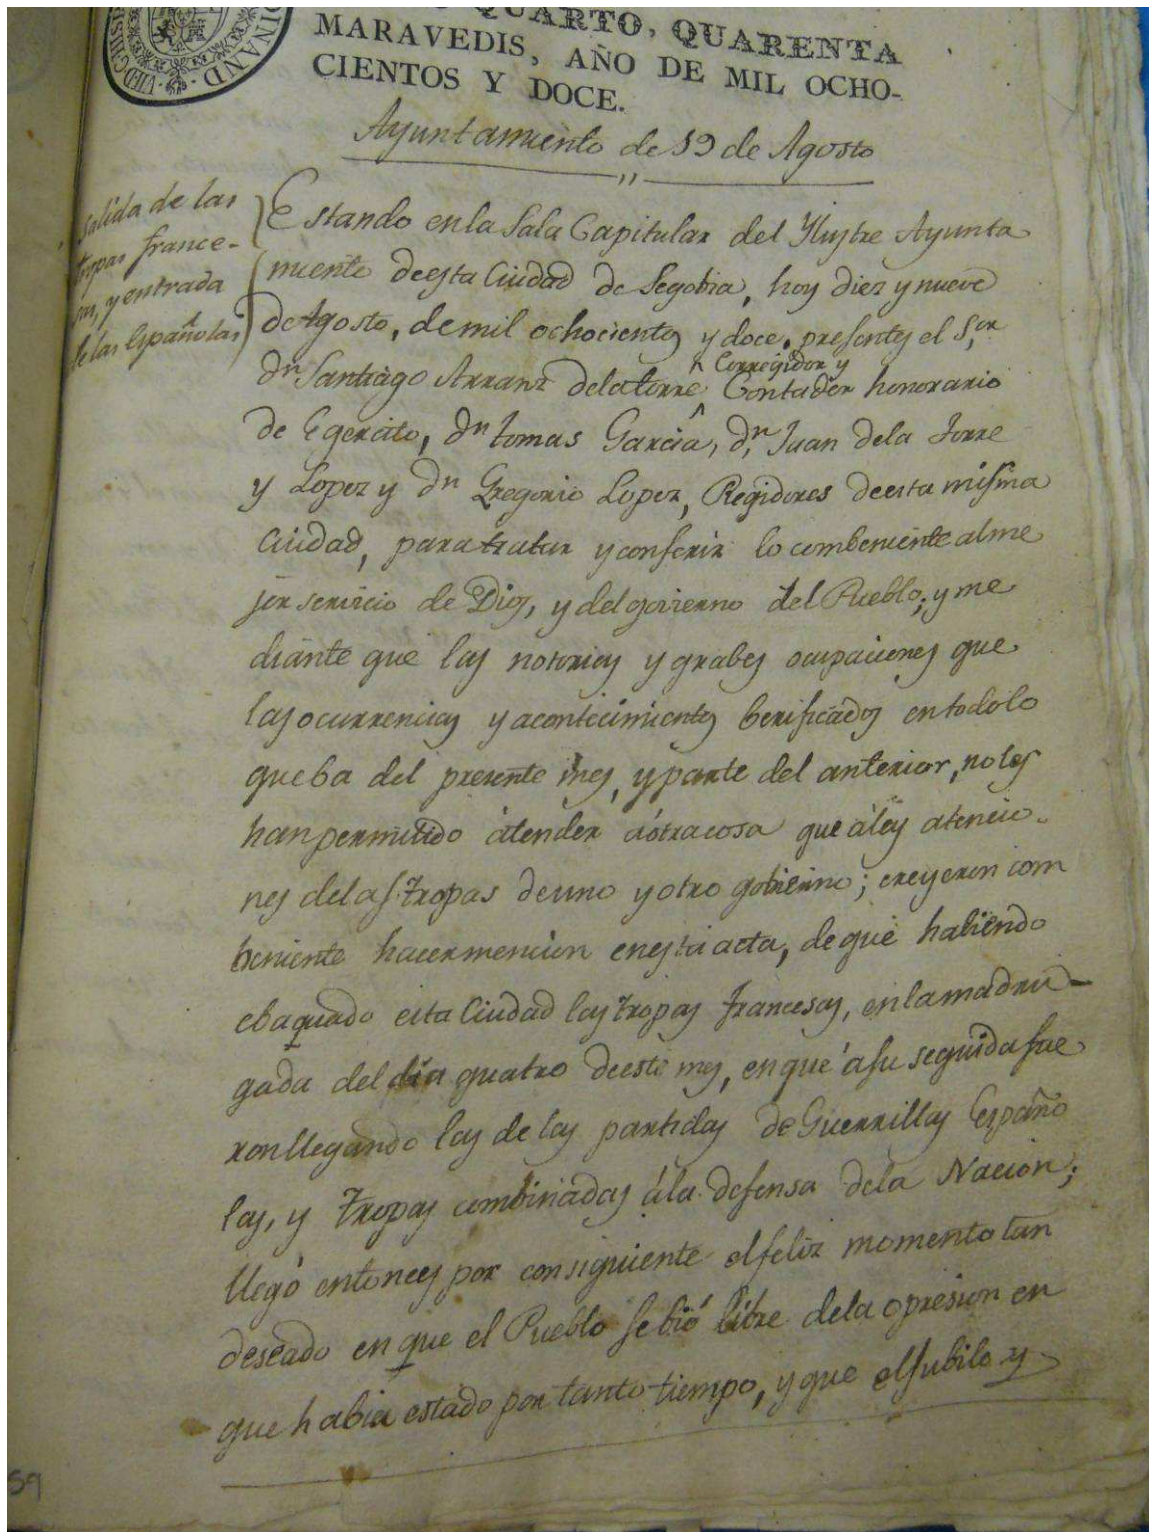 QUARTO, QUARENTA
MARAVEDIS, AÑO DE MIL OCHO-
CIENTOS Y DOCE.
Ayuntamiento de 19 de Agosto
Salida de las
tropas france-
sas, y entrada
de las Españolas
Estando en la Sala Capitular del Ylustre Ayunta
miento de esta Ciudad de Segobia, hoy diez y nueve
de Agosto, de mil ochocientos y doce, presentes el S.or
Dn Santiago Arranz de la torre Corregidor y Contador honorario
de Egercito, Dn tomas Garcia, Dn Juan de la Torre
y Lopez y Dn Gregorio Lopez, Regidores de esta misma
Ciudad, para tratar y conferir lo combeniente al me
jor servicio de Dios, y del govierno del Pueblo; y me
diante que las notorias y grabes ocupaciones que
las ocurrencias y acontecimientos berificados en todo lo
que ba del presente mes, y parte del anterior, no les
han permitido átender áótra cosa que álas atencio-
nes de las tropas de uno y otro gobierno; creyeron com
beniente hacer mencion en esta acta, de que habiendo
ebaquado esta Ciudad las tropas francesas, en la madru-
gada del día quatro de este mes, en que á su seguida fue
ron llegando las de las partidas de Guerrillas Españo
las, y tropas combinadas á la defensa de la Nacion;
llegó entonces por consiguiente el feliz momento tan
deseado en que el Pueblo se bió libre de la opresion en
que habia estado por tanto tiempo, y que el Jubilo y
59